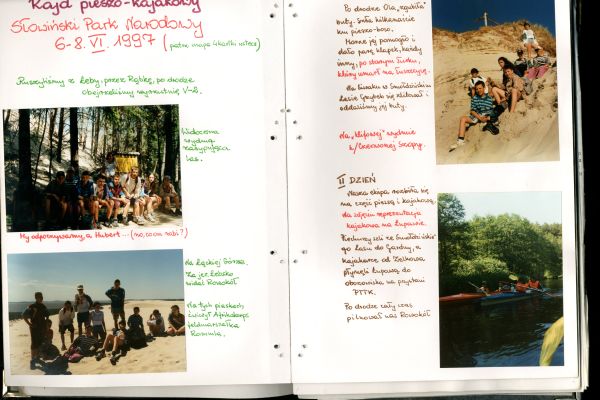 Rajd pieszo-kajakowy
Słowiński Park Narodowy
6-8.VI.1997 (patrz mapa 4 kartki wstecz)
Ruszyliśmy z Łeby, przez Rąbkę, po drodze
obejrzeliśmy wyrzutnię V-2.
Widoczna
wydma
zasypująca
las.
My odpoczywamy, a Hubert... (no, co on robi?)
Na Łąckiej Górze.
Za jez. Łebsko
widać Rowokół
Na tych piaskach
ćwiczył Afrikakorps
feldmarszałka
Rommla.
Po drodze Ola "zgubiła"
buty. Szła kilkanaście
km pieszo-boso.
Horne jej pomogło i
dało parę klapek, każdy
inny, po starym Turku,
który umarł na
Na biwaku w Smołdzińskim
Lesie Grzybek się zlitował i
oddaliśmy jej buty.
Na "klifowej" wydmie
z/Czerwonej Szopy.
II DZIEŃ
Nasza ekipa rozbiła się
na część pieszą i kajakową.
Na zdjęciu reprezentacja
kajakowa na Łupawie.
Piechurzy szli ze Smołdzińskie-
go Lasu do Gardny, a
kajakarze od Żelkowa
płynęli Łupawą do
obozowiska na przystani
PTTK.
Po drodze cały czas
pilnował nas Rowokół